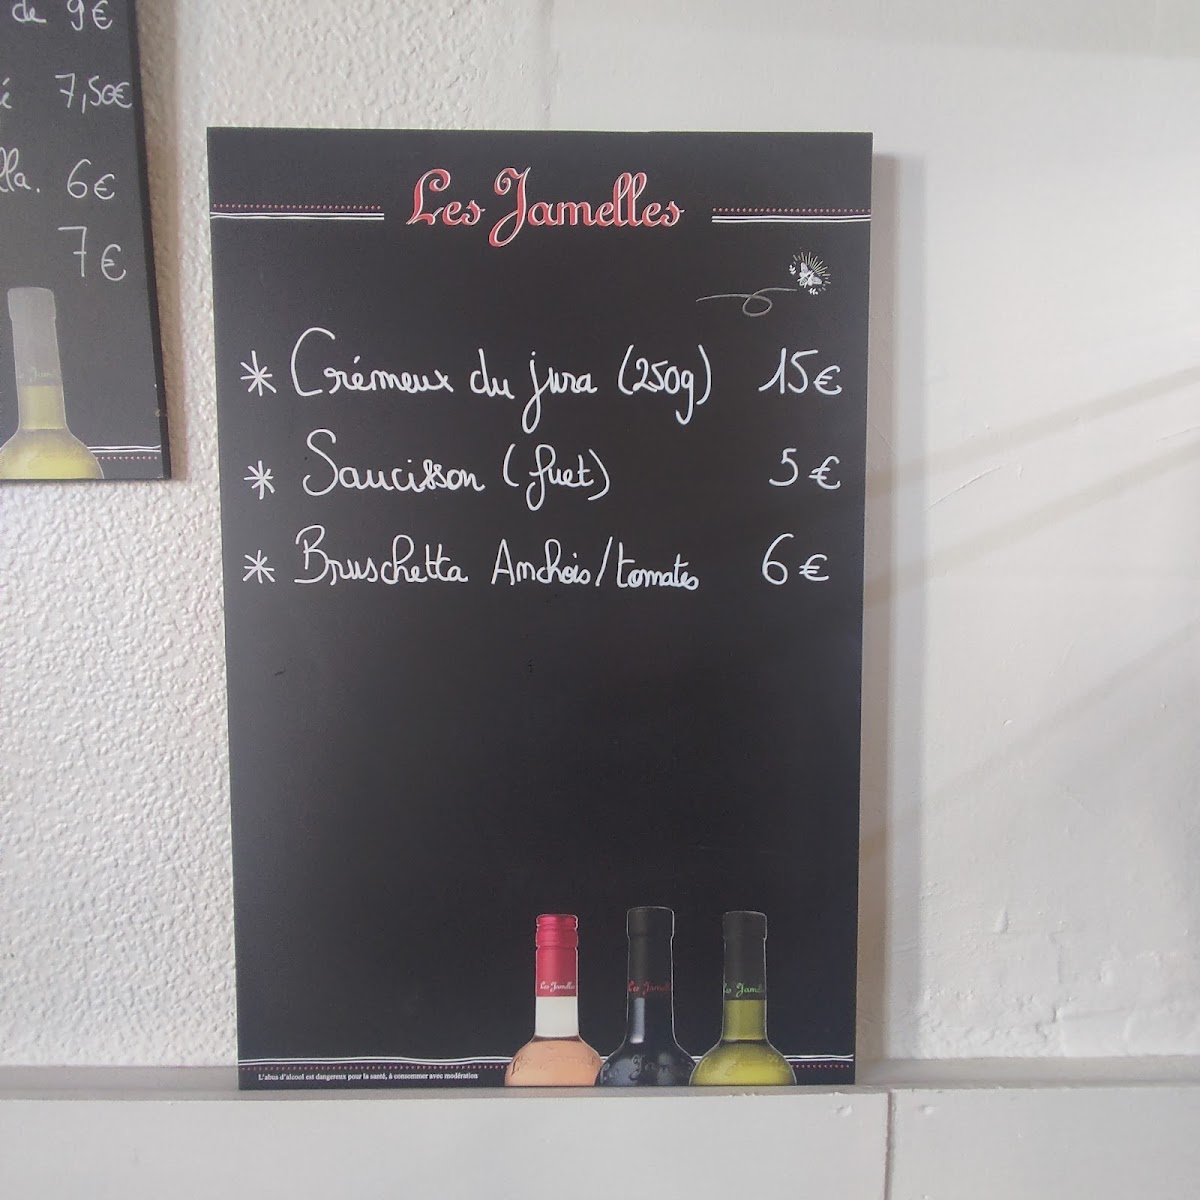 de 9€
7,50€
6€
7€
Les Jamelles
* Crémeux du jura (250g) 15€
* Saucisson (fuet) 5€
* Bruschetta Anchois/tomates 6€
Les Jamelles
Les Jamelles
L'abus d'alcool est dangereux pour la santé, à consommer avec modération